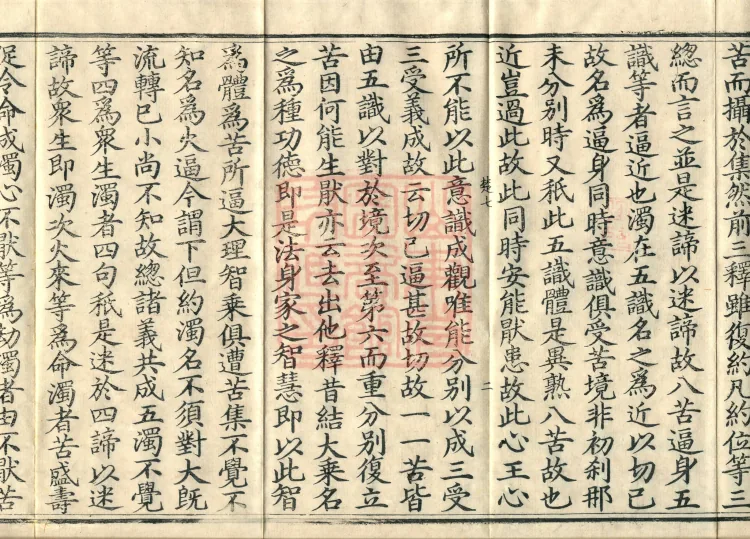 苦而攝於集然前三釋雖復約凡約位等三
總而言之並是迷諦以迷諦故八苦逼身五
識等者逼近也濁在五識名之爲近以切已
故名爲逼身同時意識俱受苦境非初刹那
未分别時又秖此五識體是異熟八苦故也
近豈過此故此同時安能猒患故此心王心
楚七
二
所不能以此意識成觀唯能分别以成三受
三受義成故云切已逼甚故切故一一苦皆
由五識以對於境次至第六而重分别復立
苦因何能生猒亦云去出他釋昔結大乘名
之爲種功德即是法身家之智慧即以此智
爲體爲苦所逼大理智乘俱遭苦集不覺不
知名爲火逼今謂下但約濁名不須對大既
流轉已小尚不知故總諸義共成五濁不覺
等四爲衆生濁者四句秖是迷於四諦以迷
諦故衆生即濁次火來等爲命濁者苦盛壽
促令命成濁心不猒等爲劫濁者由不猒苦